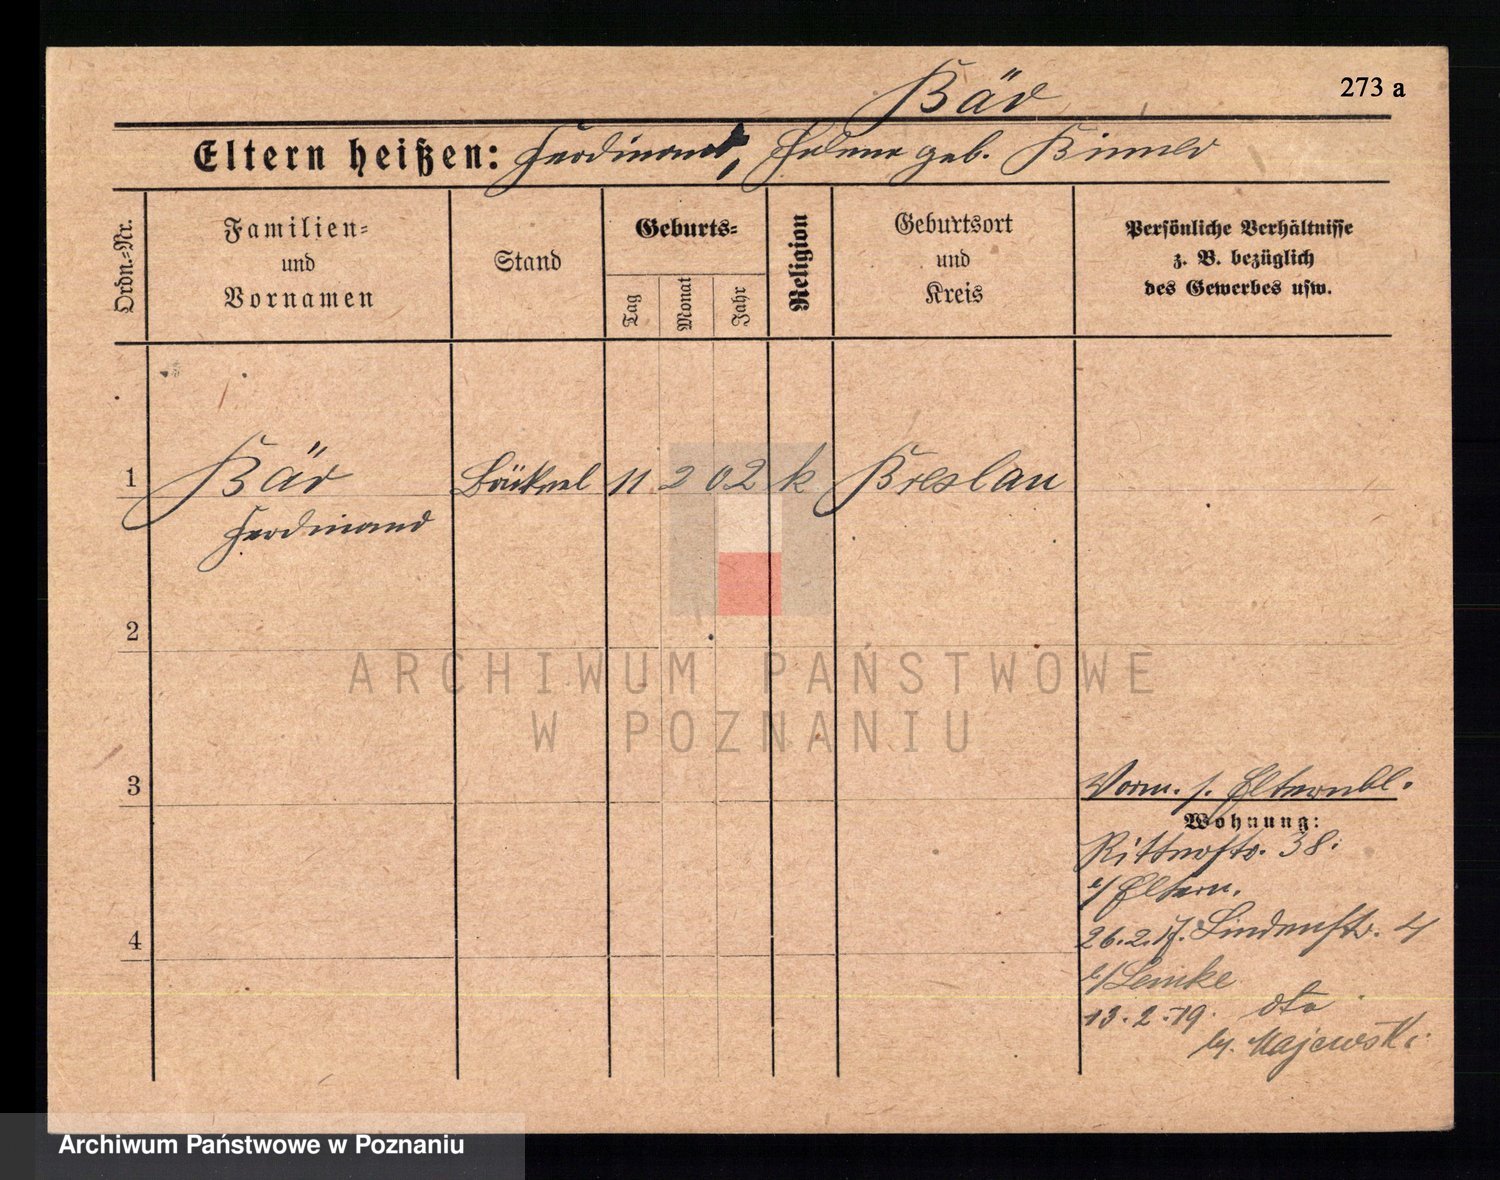 273 a
Bär
Eltern heißen: Ferdinand, Helene geb. Binner
Ordn.-Nr.
Familien-
und
Vornamen
Stand
Geburts-
Tag
Monat
Jahr
Religion
Geburtsort
und
Kreis
Persönliche Verhältnisse
z. B. bezüglich
des Gewerbes usw.
1 Bär 11 2 02 k Breslau
Ferdinand
2
ARCHIWUM PAŃSTWOWE
W POZNANIU
3
Vorm. s. Elternbl.
Wohnung:
Ritterstr. 38.
b/Eltern.
4
26.2.17. Lindenstr. 4
b/Lemke
13.2.19. dto
by. Majewski.
Archiwum Państwowe w Poznaniu